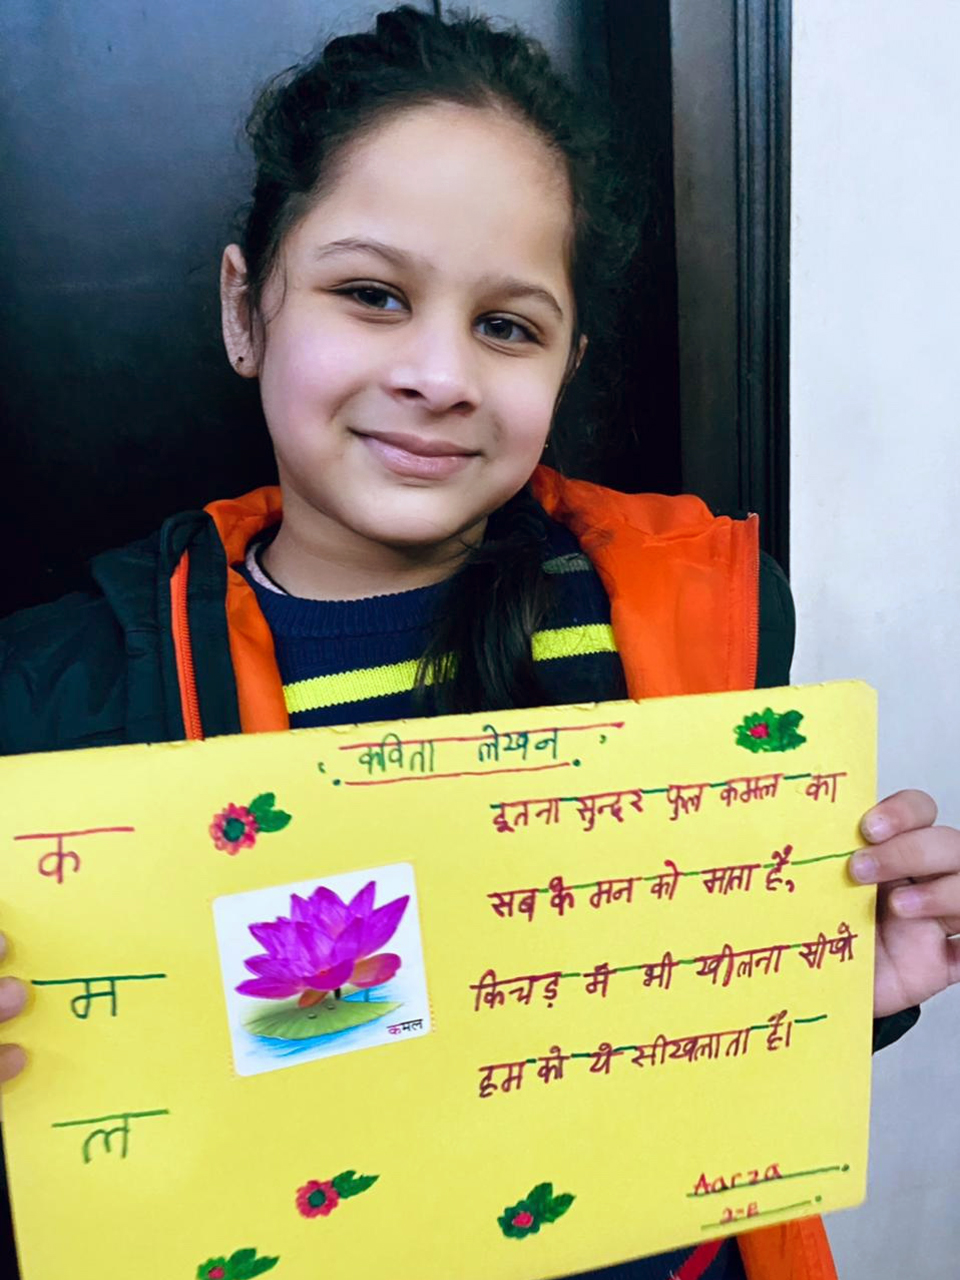 कविता लेखन
क
म
ल
कमल
इतना सुन्दर फुल कमल का
सब के मन को माता है,
किचड़ में भी खीलना सीखो
हम को ये सीखलाता है।
Aarza
2-E